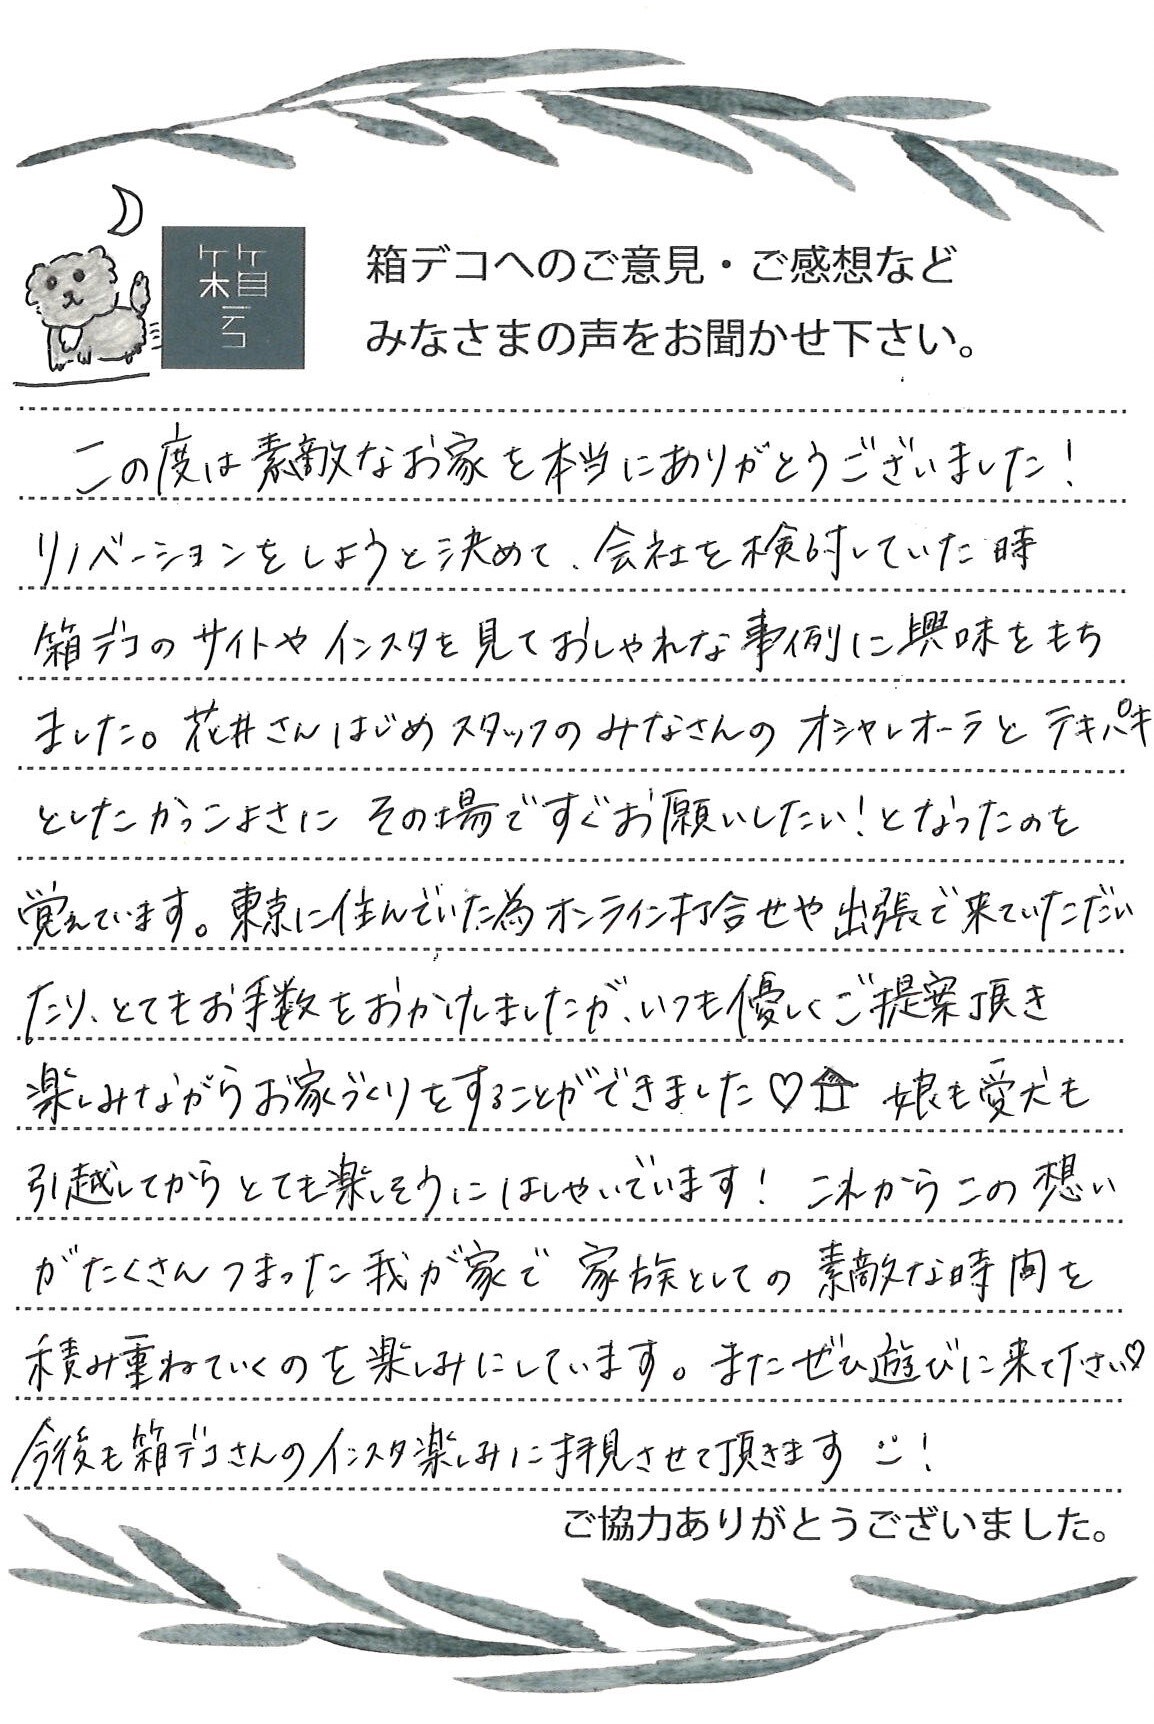 箱デコ
箱デコへのご意見・ご感想など
みなさまの声をお聞かせ下さい。
この度は素敵なお家を本当にありがとうございました！
リノベーションをしようと決めて、会社を検討していた時
箱デコのサイトやインスタを見ておしゃれな事例に興味をもち
ました。花井さんはじめスタッフのみなさんのオシャレオーラとテキパキ
としたかっこよさにその場ですぐお願いしたい！となったのを
覚えています。東京に住んでいた為オンライン打合せや出張で来ていただい
たり、とてもお手数をおかけしましたが、いつも優しくご提案頂き
楽しみながらお家づくりをすることができました♡ 娘も愛犬も
引越してからとても楽しそうにはしゃいでいます！ これからこの想い
がたくさんつまった我が家で家族としての素敵な時間を
積み重ねていくのを楽しみにしています。またぜひ遊びに来て下さい♡
今後も箱デコさんのインスタ楽しみに拝見させて頂きます！
ご協力ありがとうございました。